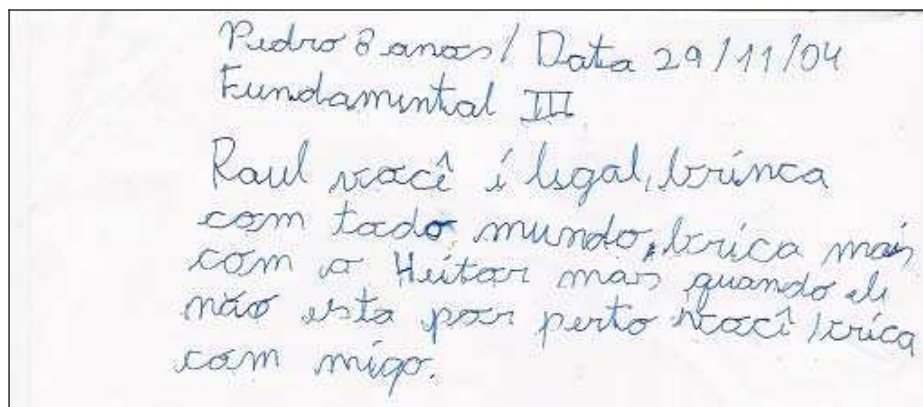 Pedro 8 anos / Data 29/11/04
Fundamental III
Raul você é legal, brinca
com todo mundo, brica mais
com o Heitor mas quando ele
não esta por perto você brica
com migo.